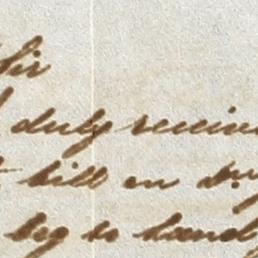 Sir
I duly receive
bill on my
beg to hand